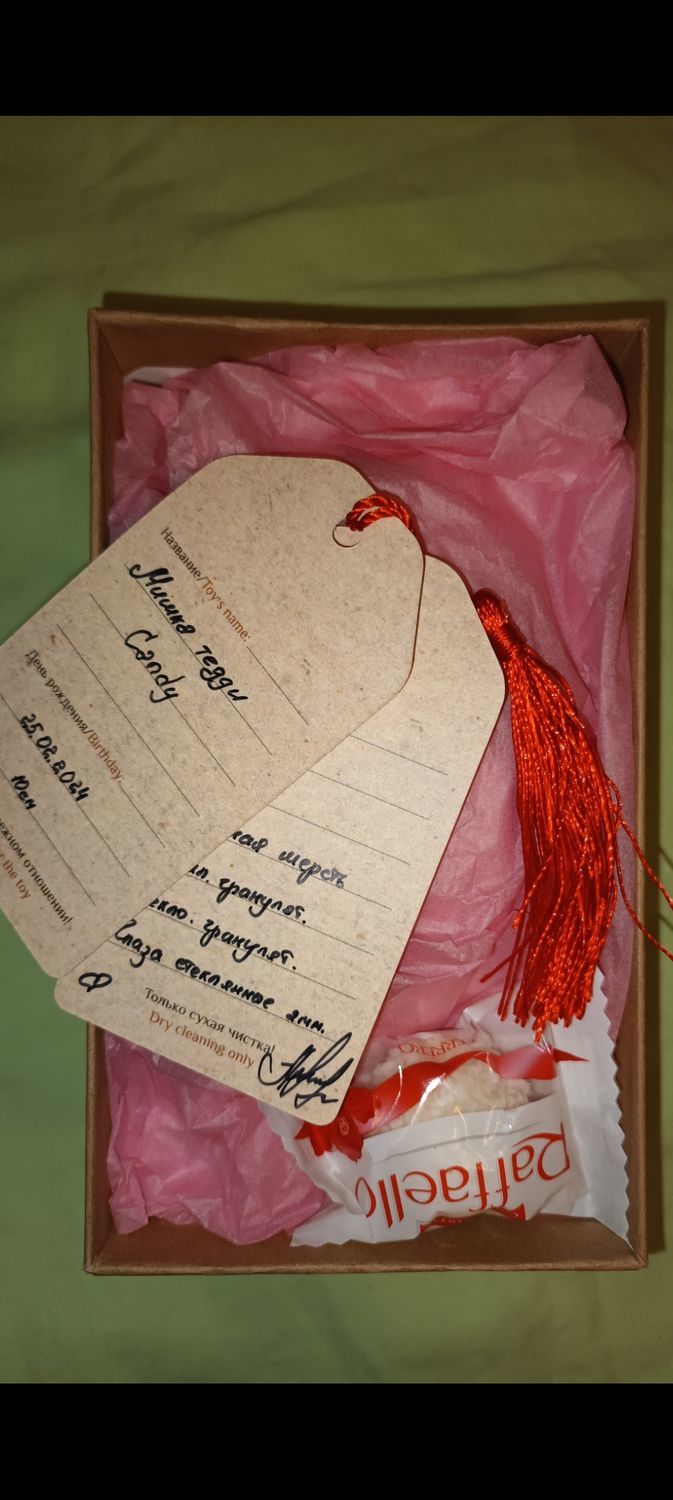 Название/Toy's name:
Мишка тедди
Candy
День рождения/Birthday:
25.02.2024
10см
отношении!
the toy
шерсть
гранулят.
гранулят.
Глаза стеклянные 2мм.
Только сухая чистка!
Dry cleaning only
FERRERO
Raffaello